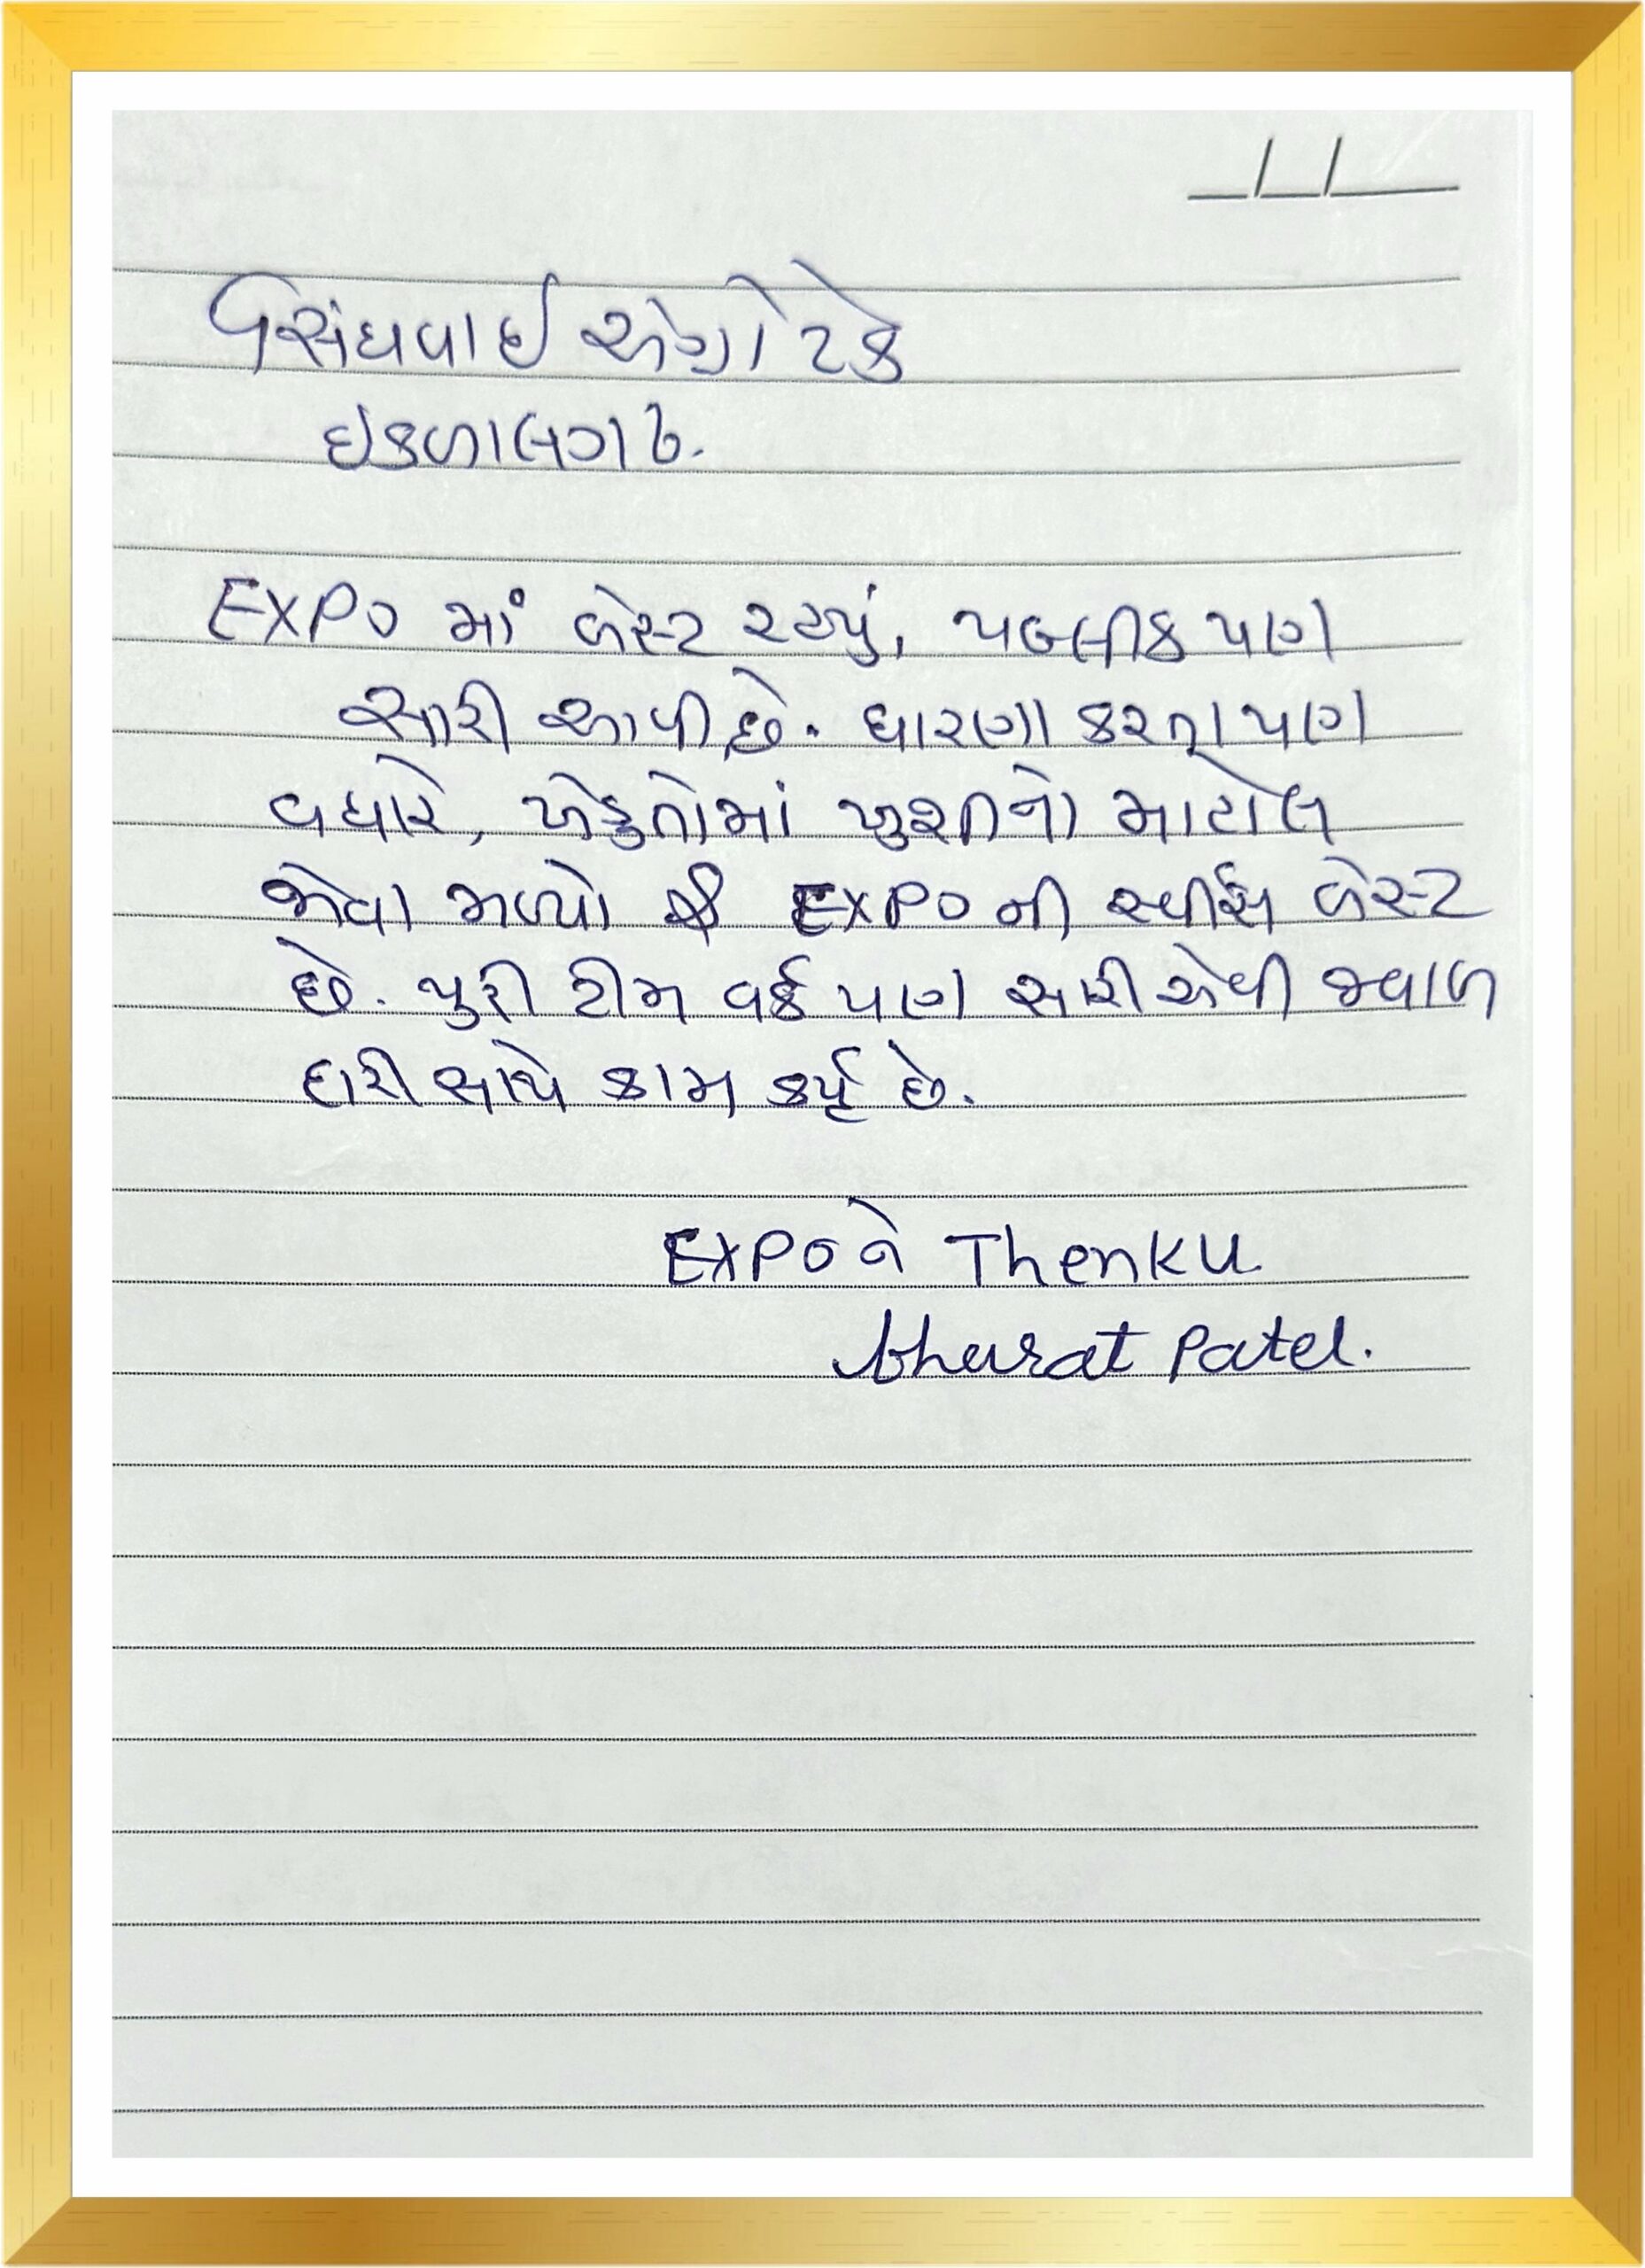 સિંધવાઈ એગ્રો ટેક
ઇકબાલગઢ.
EXPO માં બેસ્ટ રહ્યું, પબ્લીક પણ
સારી આવી છે. ધારણા કરતા પણ
વધારે, ખેડુતોમાં ખુશીનો માહોલ
જોવા મળ્યો EXPO ની સર્વીસ બેસ્ટ
છે. પુરી ટીમ વર્ક પણ સારી એવી જવાબ
દારી સાથે કામ કર્યું છે.
EXPO ને Thenku
bharat Patel.